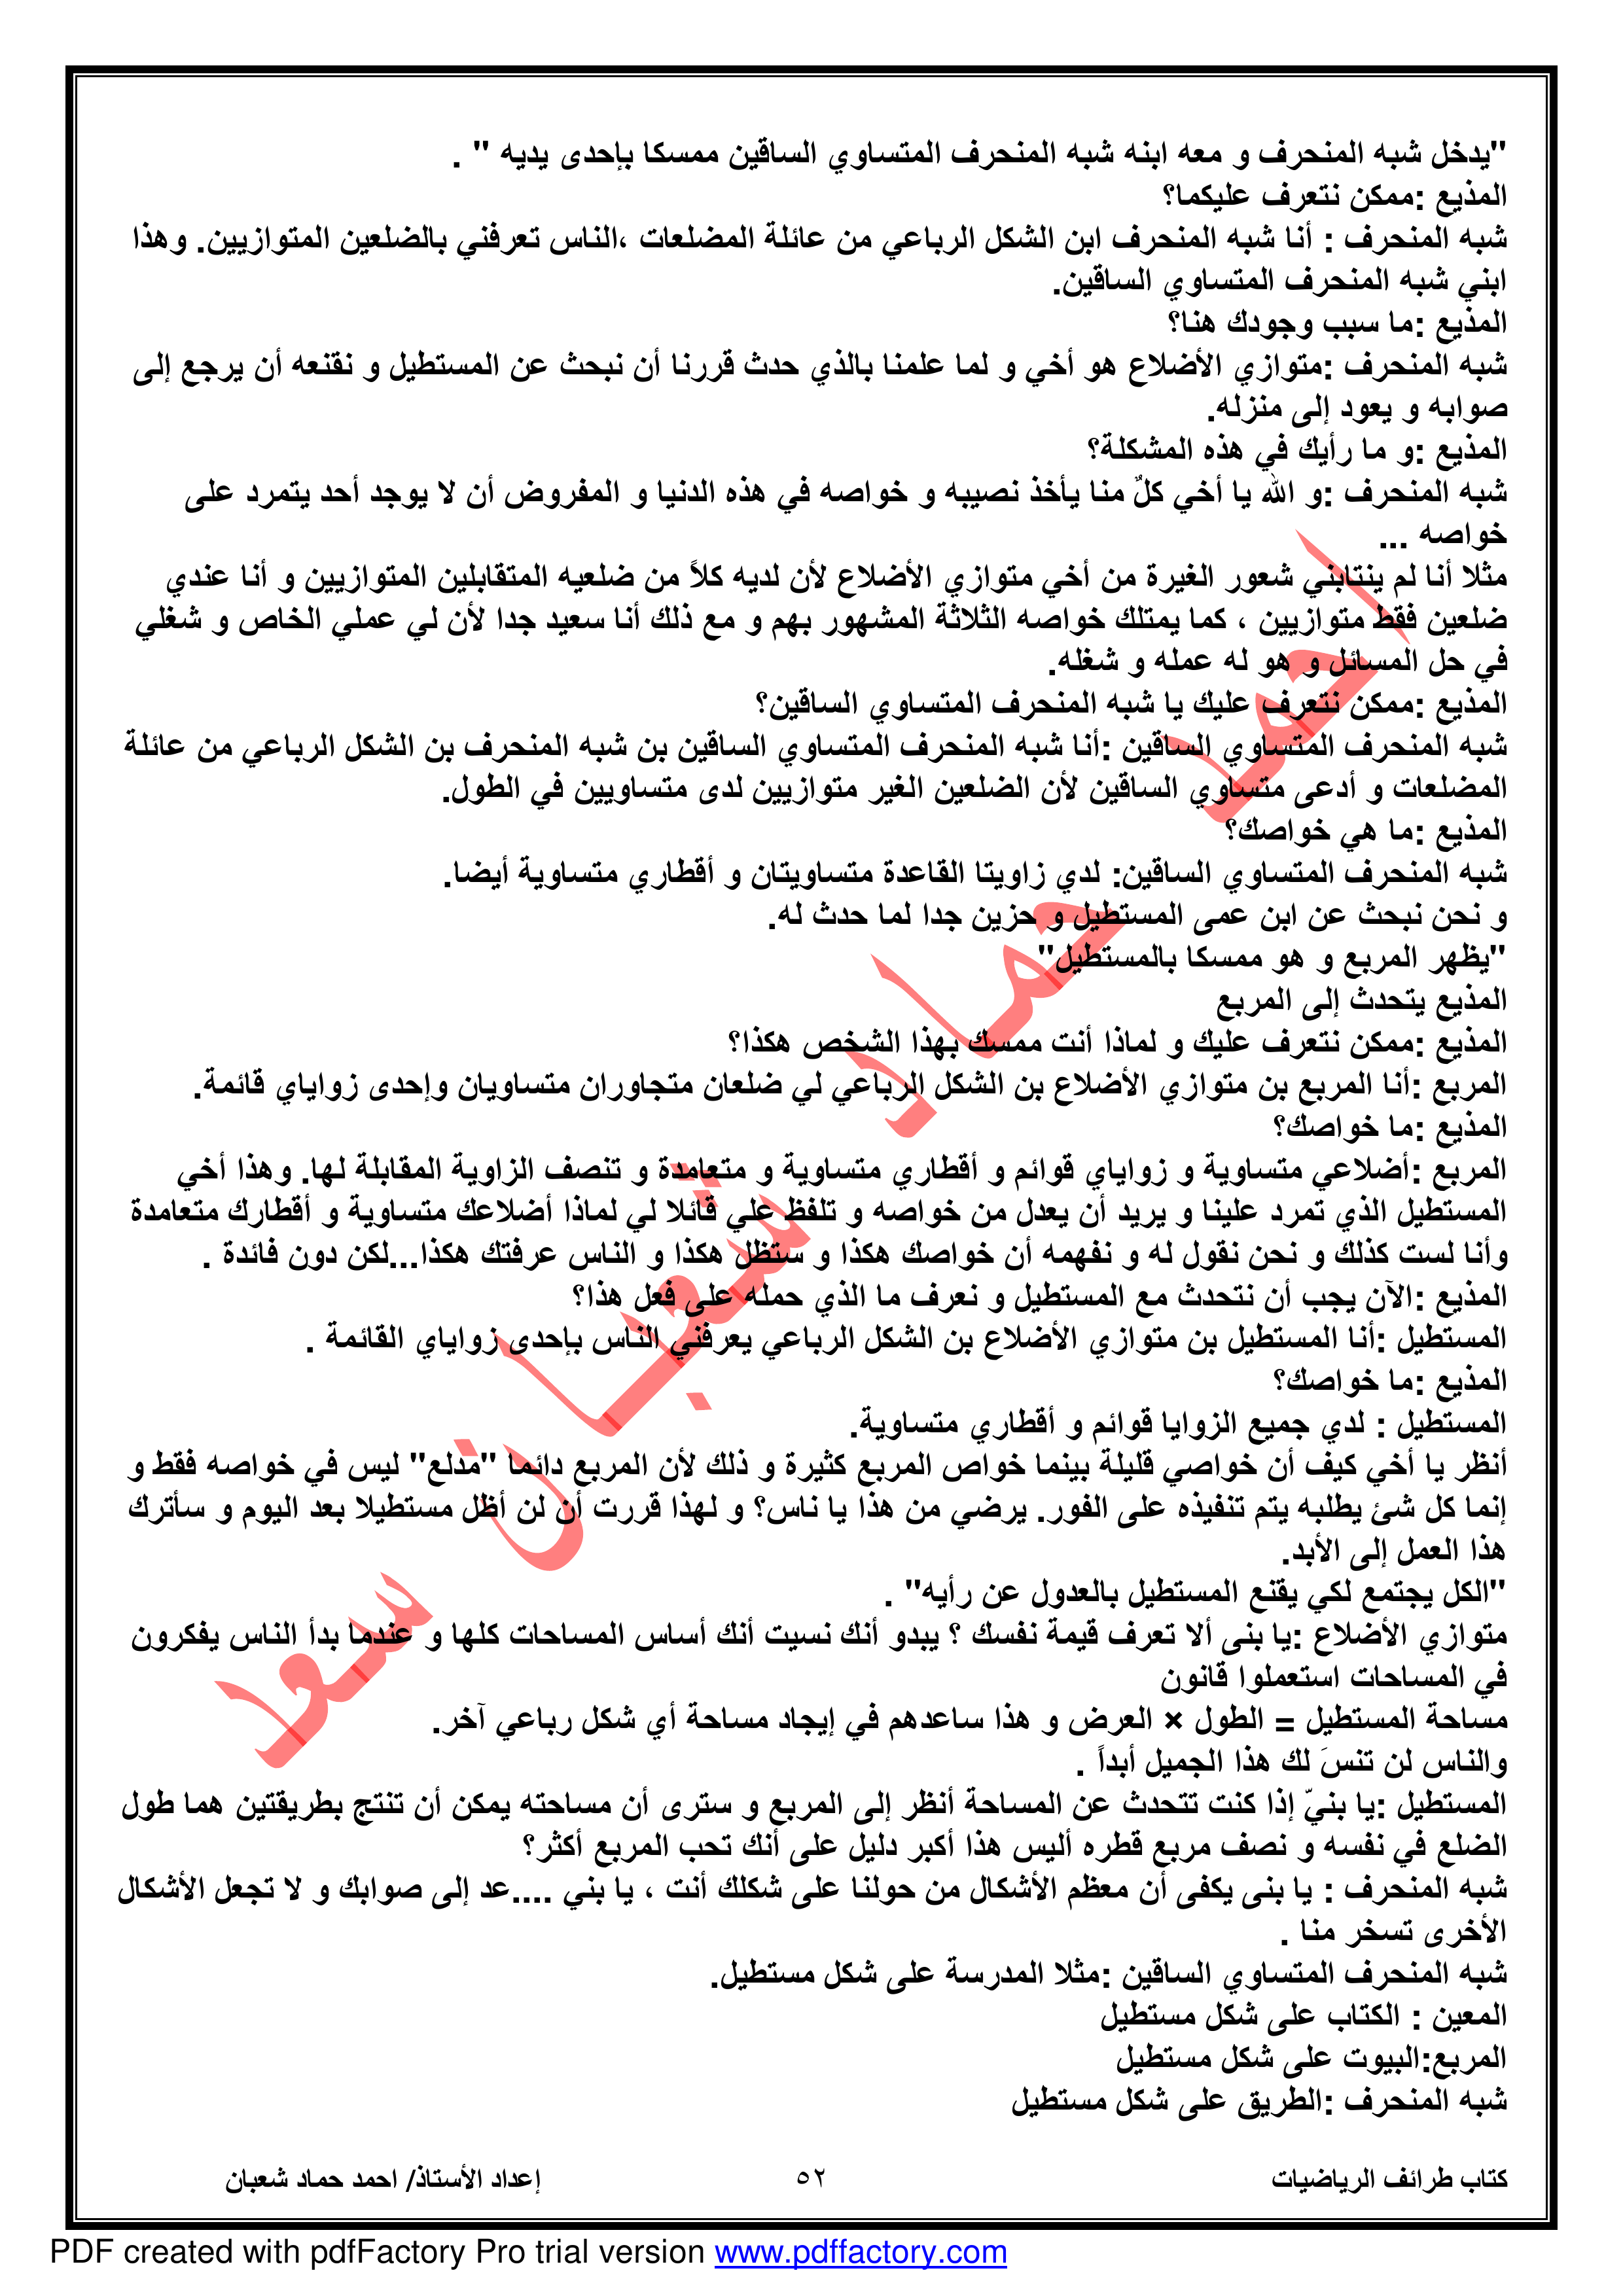 "يدخل شبه المنحرف و معه ابنه شبه المنحرف المتساوي الساقين ممسكا بإحدى يديه " .
المذيع :ممكن نتعرف عليكما؟
شبه المنحرف : أنا شبه المنحرف ابن الشكل الرباعي من عائلة المضلعات ،الناس تعرفني بالضلعين المتوازيين. وهذا
ابني شبه المنحرف المتساوي الساقين.
المذيع :ما سبب وجودك هنا؟
شبه المنحرف :متوازي الأضلاع هو أخي و لما علمنا بالذي حدث قررنا أن نبحث عن المستطيل و نقنعه أن يرجع إلى
صوابه و يعود إلى منزله.
المذيع :و ما رأيك في هذه المشكلة؟
شبه المنحرف :و الله يا أخي كلٌ منا يأخذ نصيبه و خواصه في هذه الدنيا و المفروض أن لا يوجد أحد يتمرد على
خواصه ...
مثلا أنا لم ينتابني شعور الغيرة من أخي متوازي الأضلاع لأن لديه كلاً من ضلعيه المتقابلين المتوازيين و أنا عندي
ضلعين فقط متوازيين ، كما يمتلك خواصه الثلاثة المشهور بهم و مع ذلك أنا سعيد جدا لأن لي عملي الخاص و شغلي
في حل المسائل و هو له عمله و شغله.
المذيع :ممكن نتعرف عليك يا شبه المنحرف المتساوي الساقين؟
شبه المنحرف المتساوي الساقين :أنا شبه المنحرف المتساوي الساقين بن شبه المنحرف بن الشكل الرباعي من عائلة
المضلعات و أدعى متساوي الساقين لأن الضلعين الغير متوازيين لدى متساويين في الطول.
المذيع :ما هي خواصك؟
شبه المنحرف المتساوي الساقين: لدي زاويتا القاعدة متساويتان و أقطاري متساوية أيضا.
و نحن نبحث عن ابن عمى المستطيل و حزين جدا لما حدث له.
"يظهر المربع و هو ممسكا بالمستطيل"
المذيع يتحدث إلى المربع
المذيع :ممكن نتعرف عليك و لماذا أنت ممسك بهذا الشخص هكذا؟
المربع :أنا المربع بن متوازي الأضلاع بن الشكل الرباعي لي ضلعان متجاوران متساويان وإحدى زواياي قائمة.
المذيع :ما خواصك؟
المربع :أضلاعي متساوية و زواياي قوائم و أقطاري متساوية و متعامدة و تنصف الزاوية المقابلة لها. وهذا أخي
المستطيل الذي تمرد علينا و يريد أن يعدل من خواصه و تلفظ علي قائلا لي لماذا أضلاعك متساوية و أقطارك متعامدة
وأنا لست كذلك و نحن نقول له و نفهمه أن خواصك هكذا و ستظل هكذا و الناس عرفتك هكذا...لكن دون فائدة .
المذيع :الآن يجب أن نتحدث مع المستطيل و نعرف ما الذي حمله على فعل هذا؟
المستطيل :أنا المستطيل بن متوازي الأضلاع بن الشكل الرباعي يعرفني الناس بإحدى زواياي القائمة .
المذيع :ما خواصك؟
المستطيل : لدي جميع الزوايا قوائم و أقطاري متساوية.
أنظر يا أخي كيف أن خواصي قليلة بينما خواص المربع كثيرة و ذلك لأن المربع دائما "مدلع" ليس في خواصه فقط و
إنما كل شئ يطلبه يتم تنفيذه على الفور. يرضي من هذا يا ناس؟ و لهذا قررت أن لن أظل مستطيلا بعد اليوم و سأترك
هذا العمل إلى الأبد.
"الكل يجتمع لكي يقنع المستطيل بالعدول عن رأيه" .
متوازي الأضلاع :يا بنى ألا تعرف قيمة نفسك ؟ يبدو أنك نسيت أنك أساس المساحات كلها و عندما بدأ الناس يفكرون
في المساحات استعملوا قانون
مساحة المستطيل = الطول × العرض و هذا ساعدهم في إيجاد مساحة أي شكل رباعي آخر.
والناس لن تنسَ لك هذا الجميل أبداً .
المستطيل :يا بنيّ إذا كنت تتحدث عن المساحة أنظر إلى المربع و سترى أن مساحته يمكن أن تنتج بطريقتين هما طول
الضلع في نفسه و نصف مربع قطره أليس هذا أكبر دليل على أنك تحب المربع أكثر؟
شبه المنحرف : يا بنى يكفى أن معظم الأشكال من حولنا على شكلك أنت ، يا بني ....عد إلى صوابك و لا تجعل الأشكال
الأخرى تسخر منا .
شبه المنحرف المتساوي الساقين :مثلا المدرسة على شكل مستطيل.
المعين : الكتاب على شكل مستطيل
المربع:البيوت على شكل مستطيل
شبه المنحرف :الطريق على شكل مستطيل
احمد حماد شعبان سعد
كتاب طرائف الرياضيات ٥٢ إعداد الأستاذ/ احمد حماد شعبان
PDF created with pdfFactory Pro trial version www.pdffactory.com